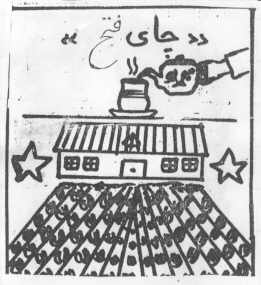 «چای فتح»